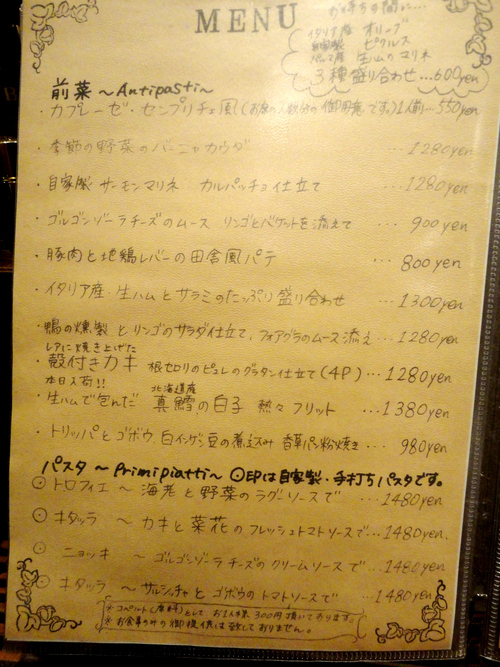 MENU
お待ちの間に…
イタリア産 オリーブ
自家製 ピクルス
生ハムのマリネ
3種盛り合わせ…600yen
前菜 〜Antipasti〜
・カプレーゼ・センプリチェ風(お人数分の御用意です。)1人前…550yen
・季節の野菜のバーニャカウダ …1280yen
・自家製 サーモンマリネ カルパッチョ仕立て …1280yen
・ゴルゴンゾーラチーズのムース リンゴとバケットを添えて …900yen
・豚肉と地鶏レバーの田舎風パテ …800yen
・イタリア産 生ハムとサラミのたっぷり盛り合わせ …1300yen
・鴨の燻製とリンゴのサラダ仕立て、フォアグラのムース添え…1280yen
レアに焼き上げた
・殻付きカキ 根セロリのピュレのグラタン仕立て(4P)…1280yen
本日入荷!! 北海道産
・生ハムで包んだ 真鱈の白子 熱々フリット …1380yen
・トリッパとゴボウ 白インゲン豆の煮込み 香草パン粉焼き…980yen
パスタ 〜Primipiatti〜 ⊙印は自家製・手打ちパスタです。
⊙ トロフィエ 〜 海老と野菜のラグーソースで …1480yen
⊙ キタッラ 〜 カキと菜花のフレッシュトマトソースで…1480yen.
⊙ ニョッキ 〜 ゴルゴンゾーラチーズのクリームソースで …1480yen
⊙ キタッラ 〜 サルシッチャとゴボウのトマトソースで …1480yen
※コペルト(席料)として、お1人様 300円 頂いております。
※お食事のみの御提供は致しておりません。